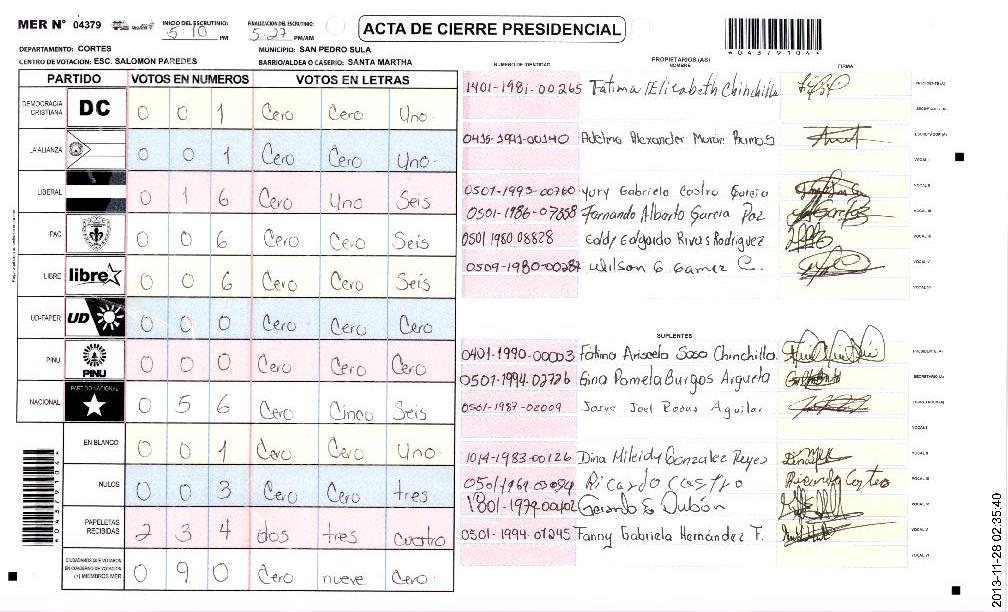 MER N° 04379
INICIO DEL ESCRUTINIO: 5:10 PM
FINALIZACION DEL ESCRUTINIO: 5:27 PM/AM
ACTA DE CIERRE PRESIDENCIAL
*04379104*
DEPARTAMENTO: CORTES
MUNICIPIO: SAN PEDRO SULA
CENTRO DE VOTACION: ESC. SALOMON PAREDES
BARRIO/ALDEA O CASERIO: SANTA MARTHA
PARTIDO VOTOS EN NUMEROS VOTOS EN LETRAS
DEMOCRACIA CRISTIANA DC 0 0 1 Cero Cero Uno
LA ALIANZA 0 0 1 Cero Cero Uno
LIBERAL 0 1 6 Cero Uno Seis
PAC 0 0 6 Cero Cero Seis
LIBRE libre 0 0 6 Cero Cero Seis
UD-FAPER UD 0 0 0 Cero Cero Cero
PINU PINU 0 0 0 Cero Cero Cero
NACIONAL PARTIDO NACIONAL 0 5 6 Cero Cinco Seis
EN BLANCO 0 0 1 Cero Cero Uno
NULOS 0 0 3 Cero Cero tres
PAPELETAS RECIBIDAS 2 3 4 dos tres cuatro
CIUDADANOS QUE VOTARON EN CUADERNO DE VOTACION (+) MIEMBROS MER 0 9 0 Cero nueve Cero
*04379104*
NUMERO DE IDENTIDAD PROPIETARIOS (AS) NOMBRE FIRMA
1401-1981-00265 Fatima Elizabeth Chinchilla PRESIDENTE (A)
SECRETARIO (A)
Adelmo Alexander Ramos ESCRUTADOR (A)
VOCAL I
0501-1993-00760 Yury Gabriela Castro Garcia VOCAL II
0501-1986-07358 Fernando Alberto Garcia Paz VOCAL III
0501 1980 08828 Eddy Edgardo Rivas Rodriguez VOCAL IV
0509-1980-00287 Wilson G. Gamez C. VOCAL V
VOCAL VI
SUPLENTES
0401-1990-00003 Fatima Sosa Chinchilla PRESIDENTE (A)
0501-1994-02726 Gina Pamela Burgos Argueta SECRETARIO (A)
0501-1987-02009 Josue Joel Rodas Aguilar ESCRUTADOR (A)
VOCAL I
1014-1983-00126 Dina Mileidy Gonzalez Reyes VOCAL II
Ricardo Castro VOCAL III
Gerardo E Dubón VOCAL IV
0501-1994-01245 Fanny Gabriela Hernández F. VOCAL V
VOCAL VI
2013-11-28 02:35:40